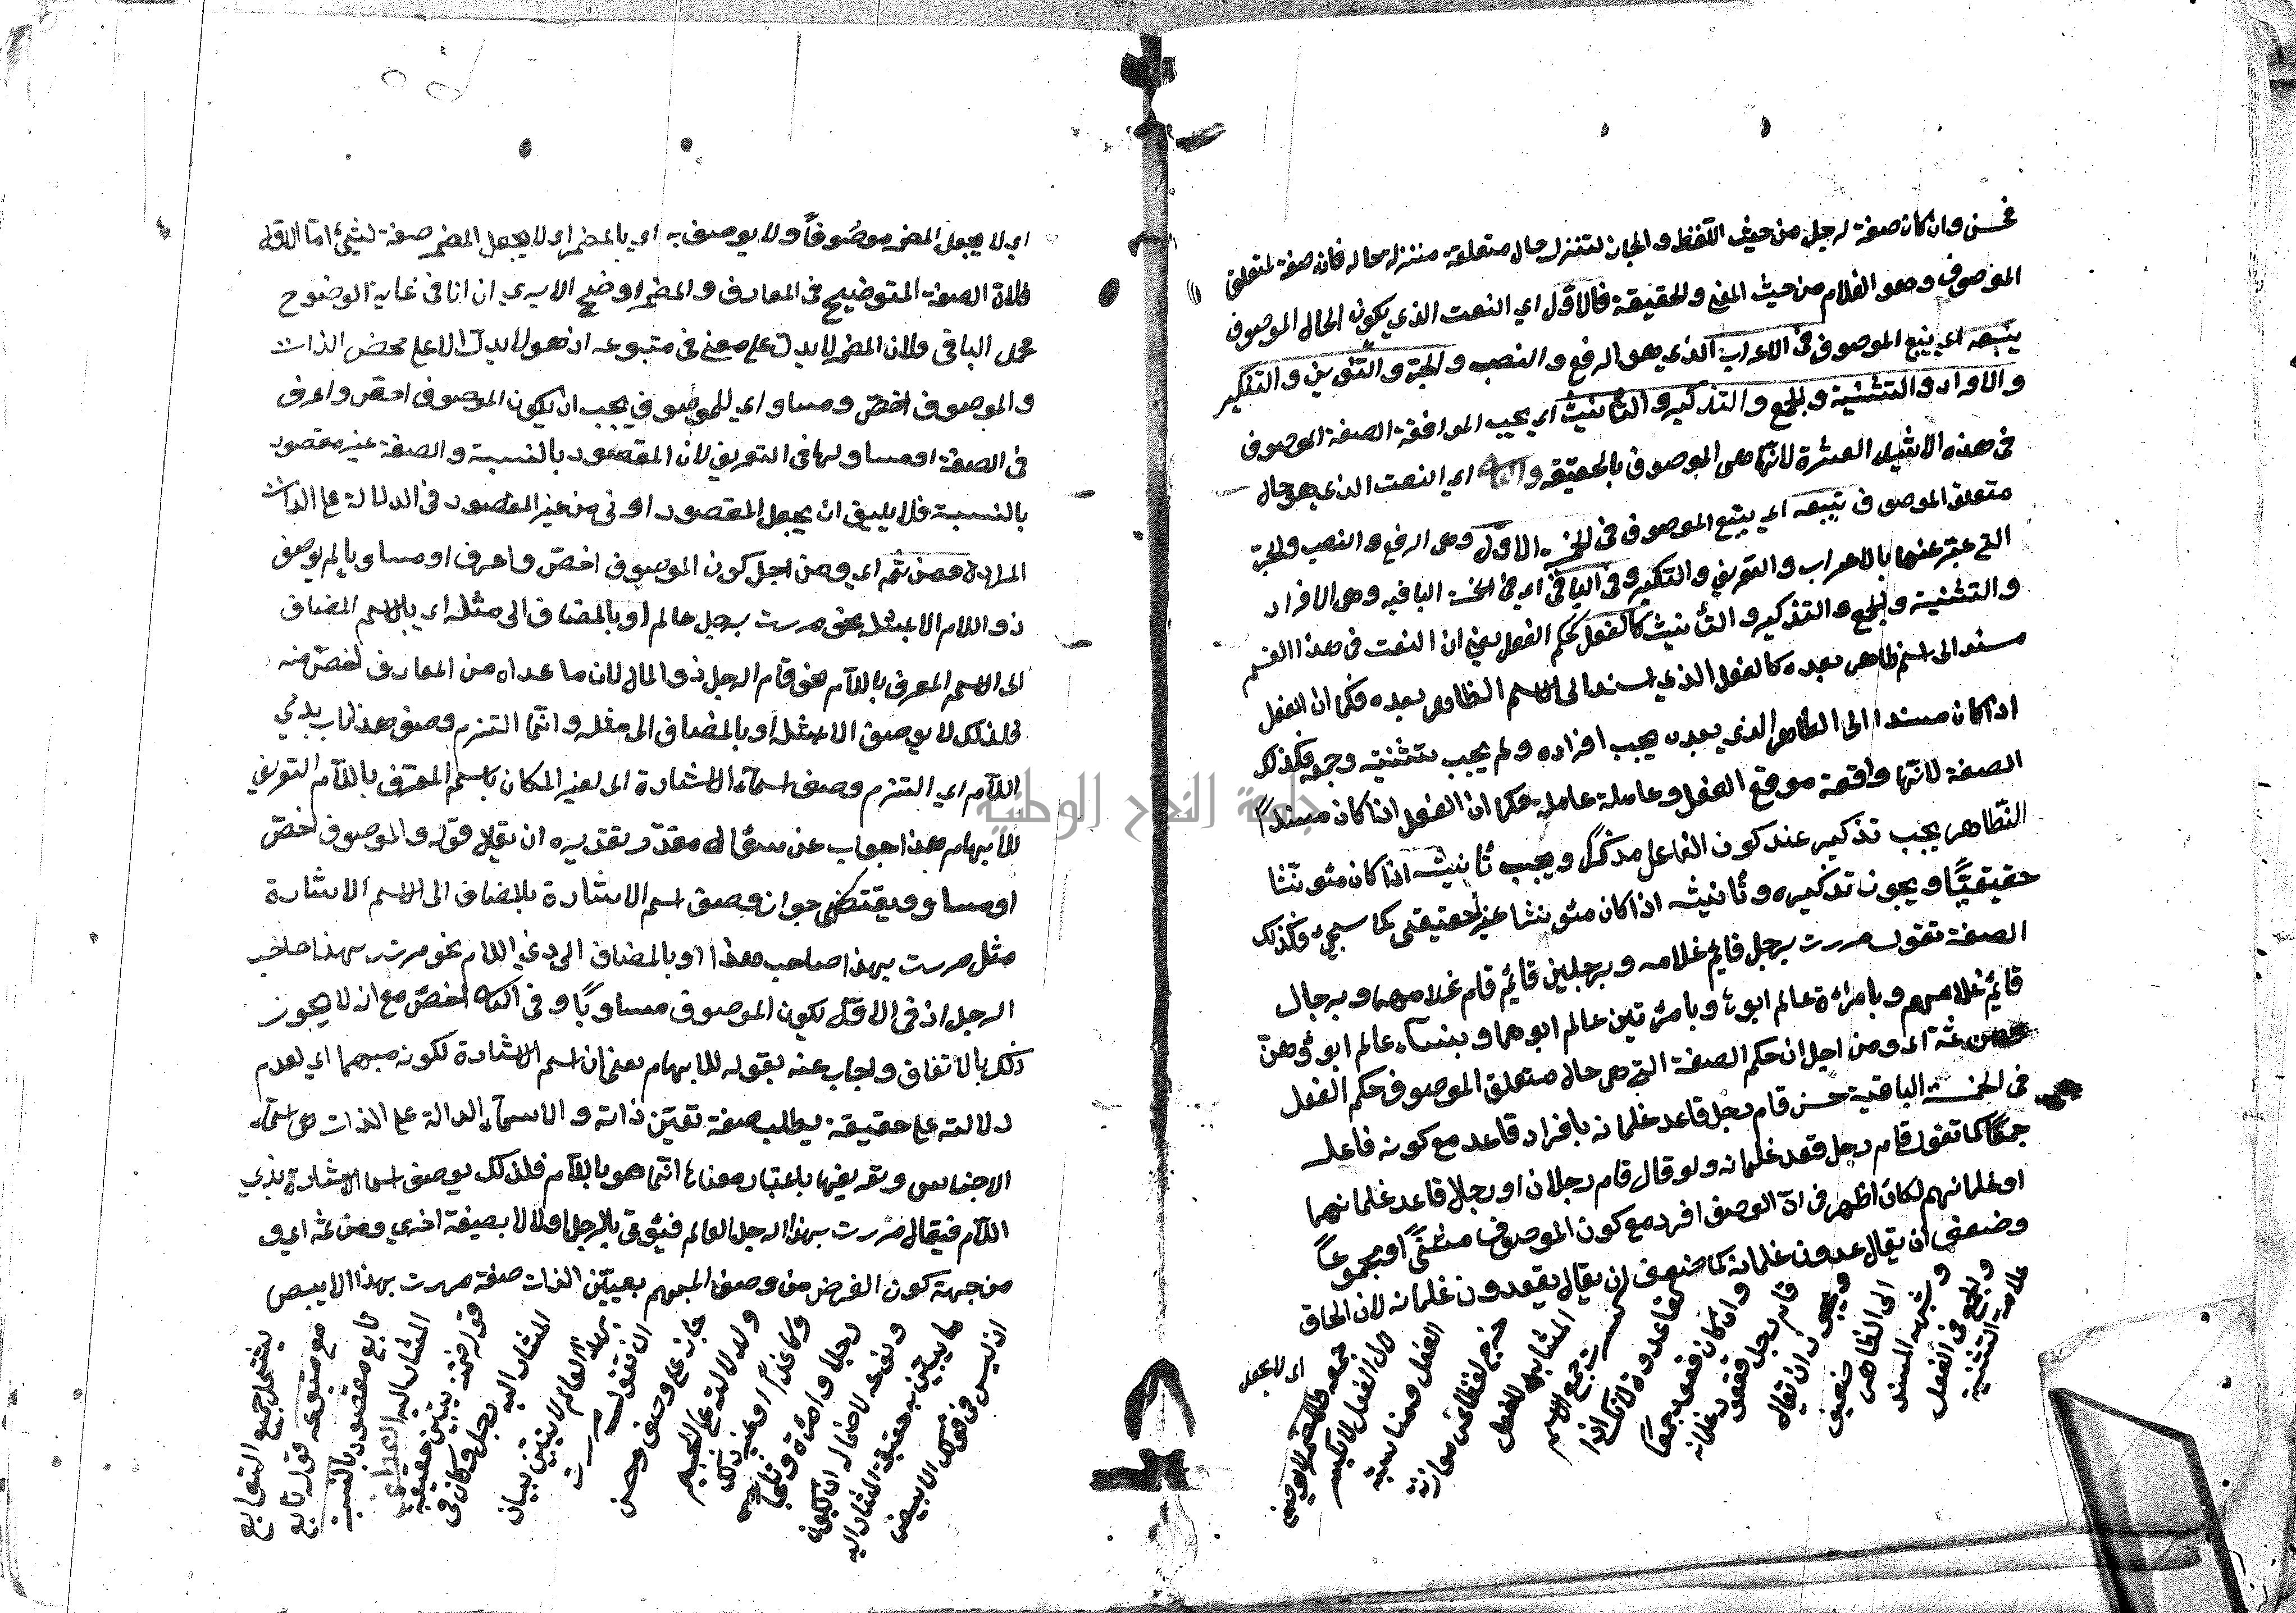 فحسن وان كان صفة لرجل من حيث اللفظ والمجاز لتنزل حال متعلقه منزلة حاله فانه صفة لمتعلق
الموصوف وهو الغلام من حيث المعنى والحقيقة فالاول اي النعت الذي يكون الحال الموصوف
يتبعه اي يتبع الموصوف في الاعراب الذي هو الرفع والنصب والجر والتعريف والتنكير
والافراد والتثنية والجمع والتذكير والتأنيث اي يجب الموافقة الصفة الموصوف
في هذه الاشياء العشرة لانها هي الموصوف بالحقيقة والثاني اي النعت الذي هو حال
متعلق الموصوف يتبعه اي يتبع الموصوف في الخمسة الاول وهي الرفع والنصب والجر
التي عبر عنها بالاعراب والتعريف والتنكير وفي الباقي اي في الخمسة الباقية وهي الافراد
والتثنية والجمع والتذكير والتأنيث كالفعل كحكم الفعل يعني ان النعت في هذا القسم
مسند الى اسم ظاهر بعده كالفعل الذي اسند الى الاسم الظاهر بعده فكما ان الفعل
اذا كان مسندا الى الظاهر الذي بعده يجب افراده ولم يجب تثنيته وجمعه فكذلك
الصفة لانها واقعة موقع الفعل وعاملة عامله فكما ان الفعل اذا كان مسنداً
الظاهر يجب تذكيره عند كون الفاعل مذكراً ويجب تأنيثه اذا كان مؤنثا
حقيقيًا ويجوز تذكيره وتأنيثه اذا كان مؤنثا غير حقيقي كما سيجيء فكذلك
الصفة تقول مررت برجل قايم غلامه وبرجلين قائم قام غلامهما وبرجال
قائم غلامهم وبامرأة عالم ابوها وبامرأتين عالم ابوهما وبنساء عالم ابوهن
ومن ثمة اي ومن اجل ان حكم الصفة التي هي حال متعلق الموصوف حكم الفعل
في الخمسة الباقية حسن قام رجل قاعد غلمانه بافراد قاعد مع كونه فاعله
جمعًا كما تقول قام رجل قعد غلمانه ولو قال قام رجلان او رجال قاعد غلمانهما
او غلمانهم لكان اظهر في ان الوصف افرد مع كون الموصوف مثنًى او مجموعاً
وضعف ان يقال قاعدون غلمانه كما ضعف ان يقال يقعدون غلمانه لان الحاق
علامة التثنية
والجمع في الفعل
وشبهه المسند
الى الظاهر
ضعيف
ويجوز ان يقال
قام رجل قعود غلمانه
وان كان قعود جمعاً
كقاعدون لانك اذا
كسرت جمع الاسم
المشابه للفعل
خرج لفظا عن موازنة
الفعل ومناسبته
لان الفعل لا يكسر
جمعه والمضمر لا يوصف
اي لا يجعل
اي لا يجعل المضمر موصوفاً ولا يوصف به اي بالمضمر اي لا يجعل المضمر صفة لشيء اما الاول
فلان الصفة المتوضيح في المعارف والمضمر اوضح الا يرى ان انا في غاية الوضوح
محل الباقي ولان المضمر لا يدل على معنى في متبوعه اذ هو لا يدل الا على محض الذات
والموصوف اخص ومساو اي للموصوف يجب ان يكون الموصوف اخص واعرف
في الصفة او مساو لها في التعريف لان المقصود بالنسبة والصفة غير مقصود
بالنسبة فلا يليق ان يجعل المقصود ادنى من غير المقصود في الدلالة على الذات
المرادة ومن ثم اي ومن اجل كون الموصوف اخص واعرف او مساويا لم يوصف
ذو اللام الا بمثله نحو مررت برجل عالم او بالمضاف الى مثله اي بالاسم المضاف
الى الاسم المعرف باللام نحو قام الرجل ذو المال لان ما عداه من المعارف اخص منه
فلذلك لا يوصف الا بمثله او بالمضاف الى مثله وانما التزم وصف هذا باب بذي
اللام اي التزم وصف اسماء الاشارة الى لغير المكان باسم المعرف باللام التعريف
للابهام هذا جواب عن سؤال مقدر تقديره ان يقال قوله والموصوف اخص
او مساو ويقتضي جواز وصف اسم الاشارة بالمضاف الى الاسم الاشارة
مثل مررت بهذا صاحب هذا او بالمضاف الى ذي اللام نحو مررت بهذا صاحب
الرجل اذ في الاول يكون الموصوف مساويًا وفي الثاني اخص مع انه لا يجوز
ذلك بالاتفاق واجاب عنه بقوله للابهام يعني ان اسم الاشارة لكونه مبهما اي لعدم
دلالته على حقيقة يطلب صفة تعين ذاته والاسماء الدالة على الذات هي اسماء
الاجناس وتعريفها باعتبار معناها انما هو باللام فلذلك يوصف اسما الاشارة بذي
اللام فيقال مررت بهذا الرجل العالم فيؤتى بالرجل اولا لا بصفة اخرى ومن ثمة اي و
من جهة كون الغرض من وصف المبهم تعيين الذات ضعف مررت بهذا الابيض
اذ ليس في قولك الابيض
ما يبين به حقيقة المشار اليه
ونوعه لاحتمال ان يكون
رجلا وامرأة وثلجا
وكاغذًا او غير ذلك
ولا دلالة على الجسم
جاز على وحسن
ان تقول مررت
بهذا العالم لانه يبين بيان
المشار اليه رجل وكان في
قوله فقد يبين حقيقة
المشار اليه العطف
تابع مقصود بالنسبة
مع متبوعه قوله تابع
يشتمل جميع التوابع
جامعة النجاح الوطنية